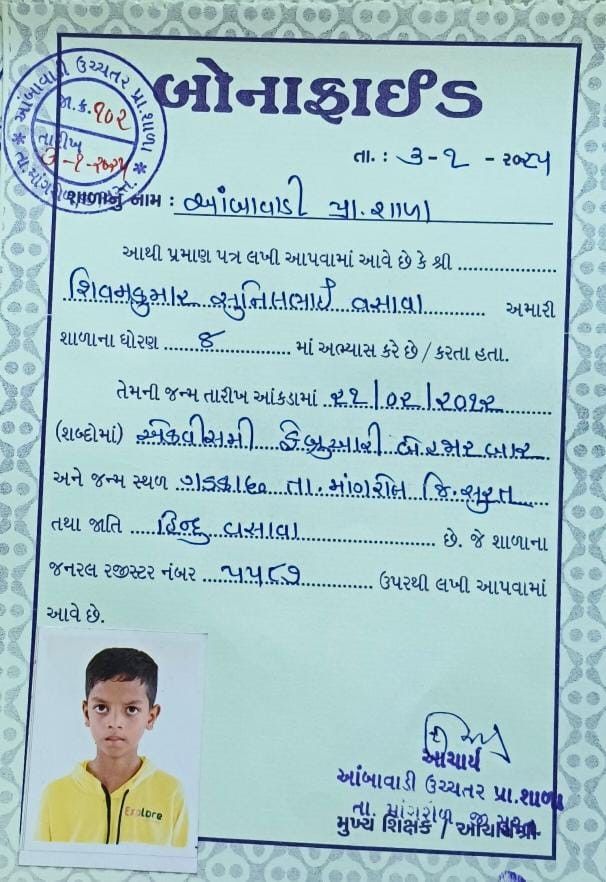 બોનાફાઈડ
આંબાવાડી ઉચ્ચતર પ્રા.શાળા
જા.ક્ર. ૧૦૨
તારીખ
૩-૧-૨૦૨૫
તા. : ૩-૧ - ૨૦૨૫
શાળાનું નામ : આંબાવાડી પ્રા.શાળા
આથી પ્રમાણ પત્ર લખી આપવામાં આવે છે કે શ્રી
શિવમકુમાર સુનિલભાઈ વસાવા અમારી
શાળાના ધોરણ ૭ માં અભ્યાસ કરે છે / કરતા હતા.
તેમની જન્મ તારીખ આંકડામાં ૨૧/૦૨/૨૦૧૨
(શબ્દોમાં) એકવીસમી ફેબ્રુઆરી બેહજાર બાર
અને જન્મ સ્થળ તા.માંગરોલ જિ.સુરત
તથા જાતિ હિન્દુ વસાવા છે. જે શાળાના
જનરલ રજીસ્ટર નંબર ઉપરથી લખી આપવામાં
આવે છે.
Explore
આચાર્ય
આંબાવાડી ઉચ્ચતર પ્રા.શાળા
તા. માંગરોળ જી. સુરત
મુખ્ય શિક્ષક / આચાર્યશ્રી